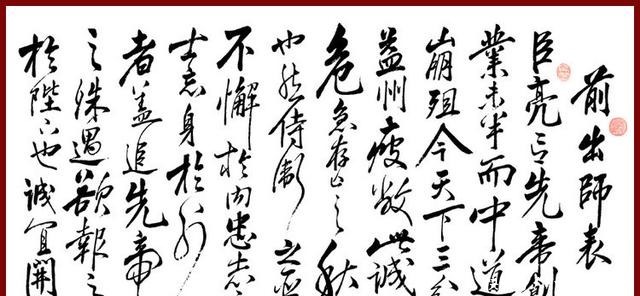 前出師表
臣亮言先帝創
業未半而中道
崩殂今天下三分
益州疲敝此誠
危急存亡之秋
也然侍衛之臣
不懈於内忠志之
士忘身於外
者蓋追先帝
之殊遇欲報之
於陛下也誠宜開